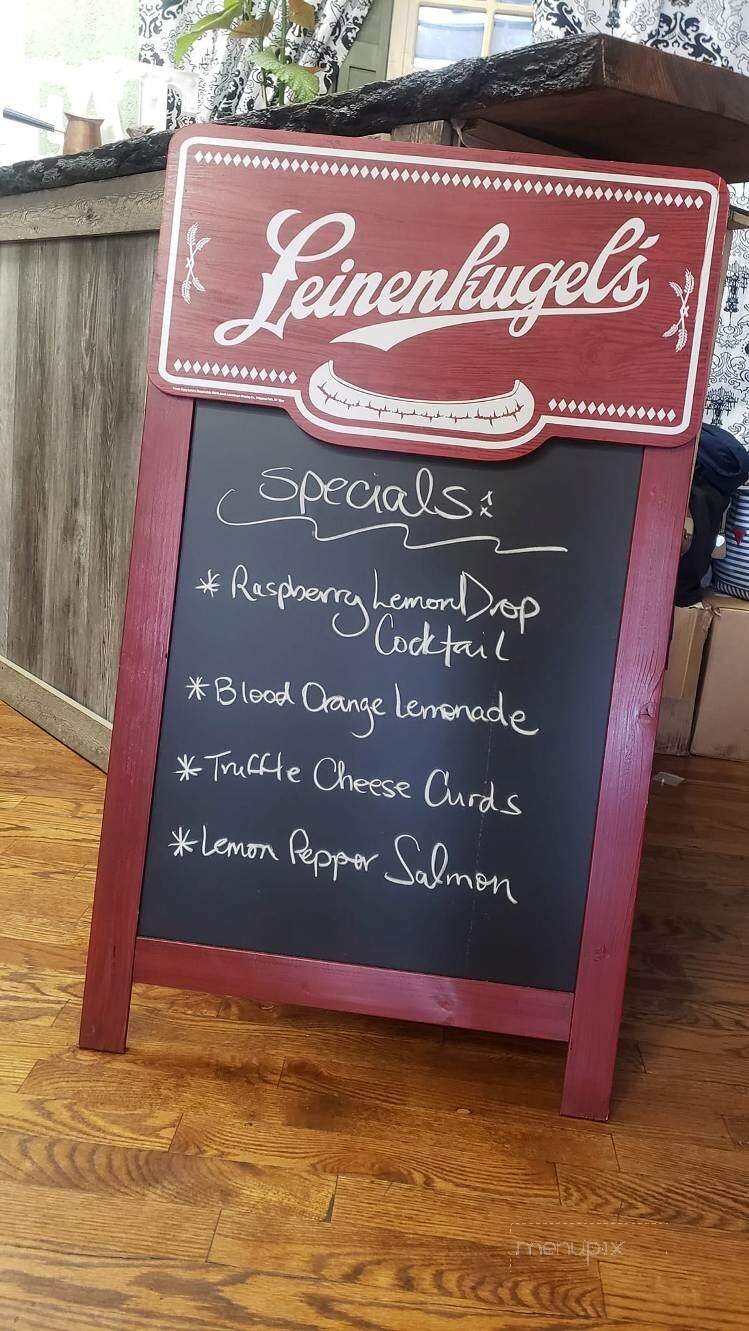 Leinenkugel's
Specials:
* Raspberry Lemon Drop
Cocktail
* Blood Orange Lemonade
* Truffle Cheese Curds
* Lemon Pepper Salmon
menupix